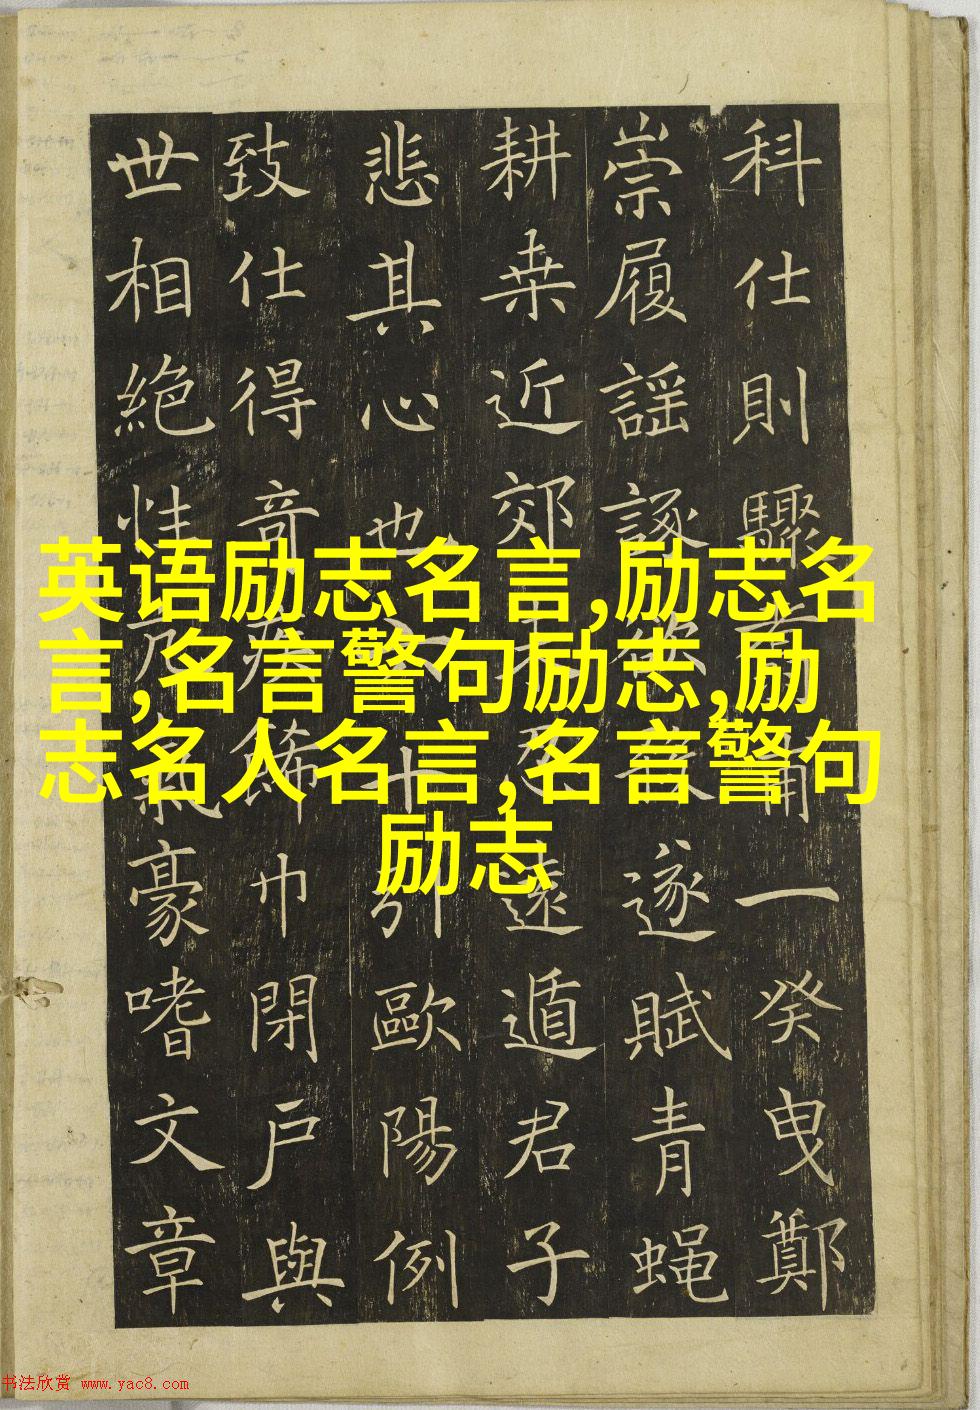 科仕則驟一癸曳鄭
崇履謡諑遂賦青蝇
耕桒近郊乃遠遁君子
悲其心也十引歐陽例
致仕得奇巾閉戶與
世相絶性豪嗜文章
英语励志名言,励志名
言,名言警句励志,励
志名人名言,名言警句
励志
书法欣赏 www.yac8.com